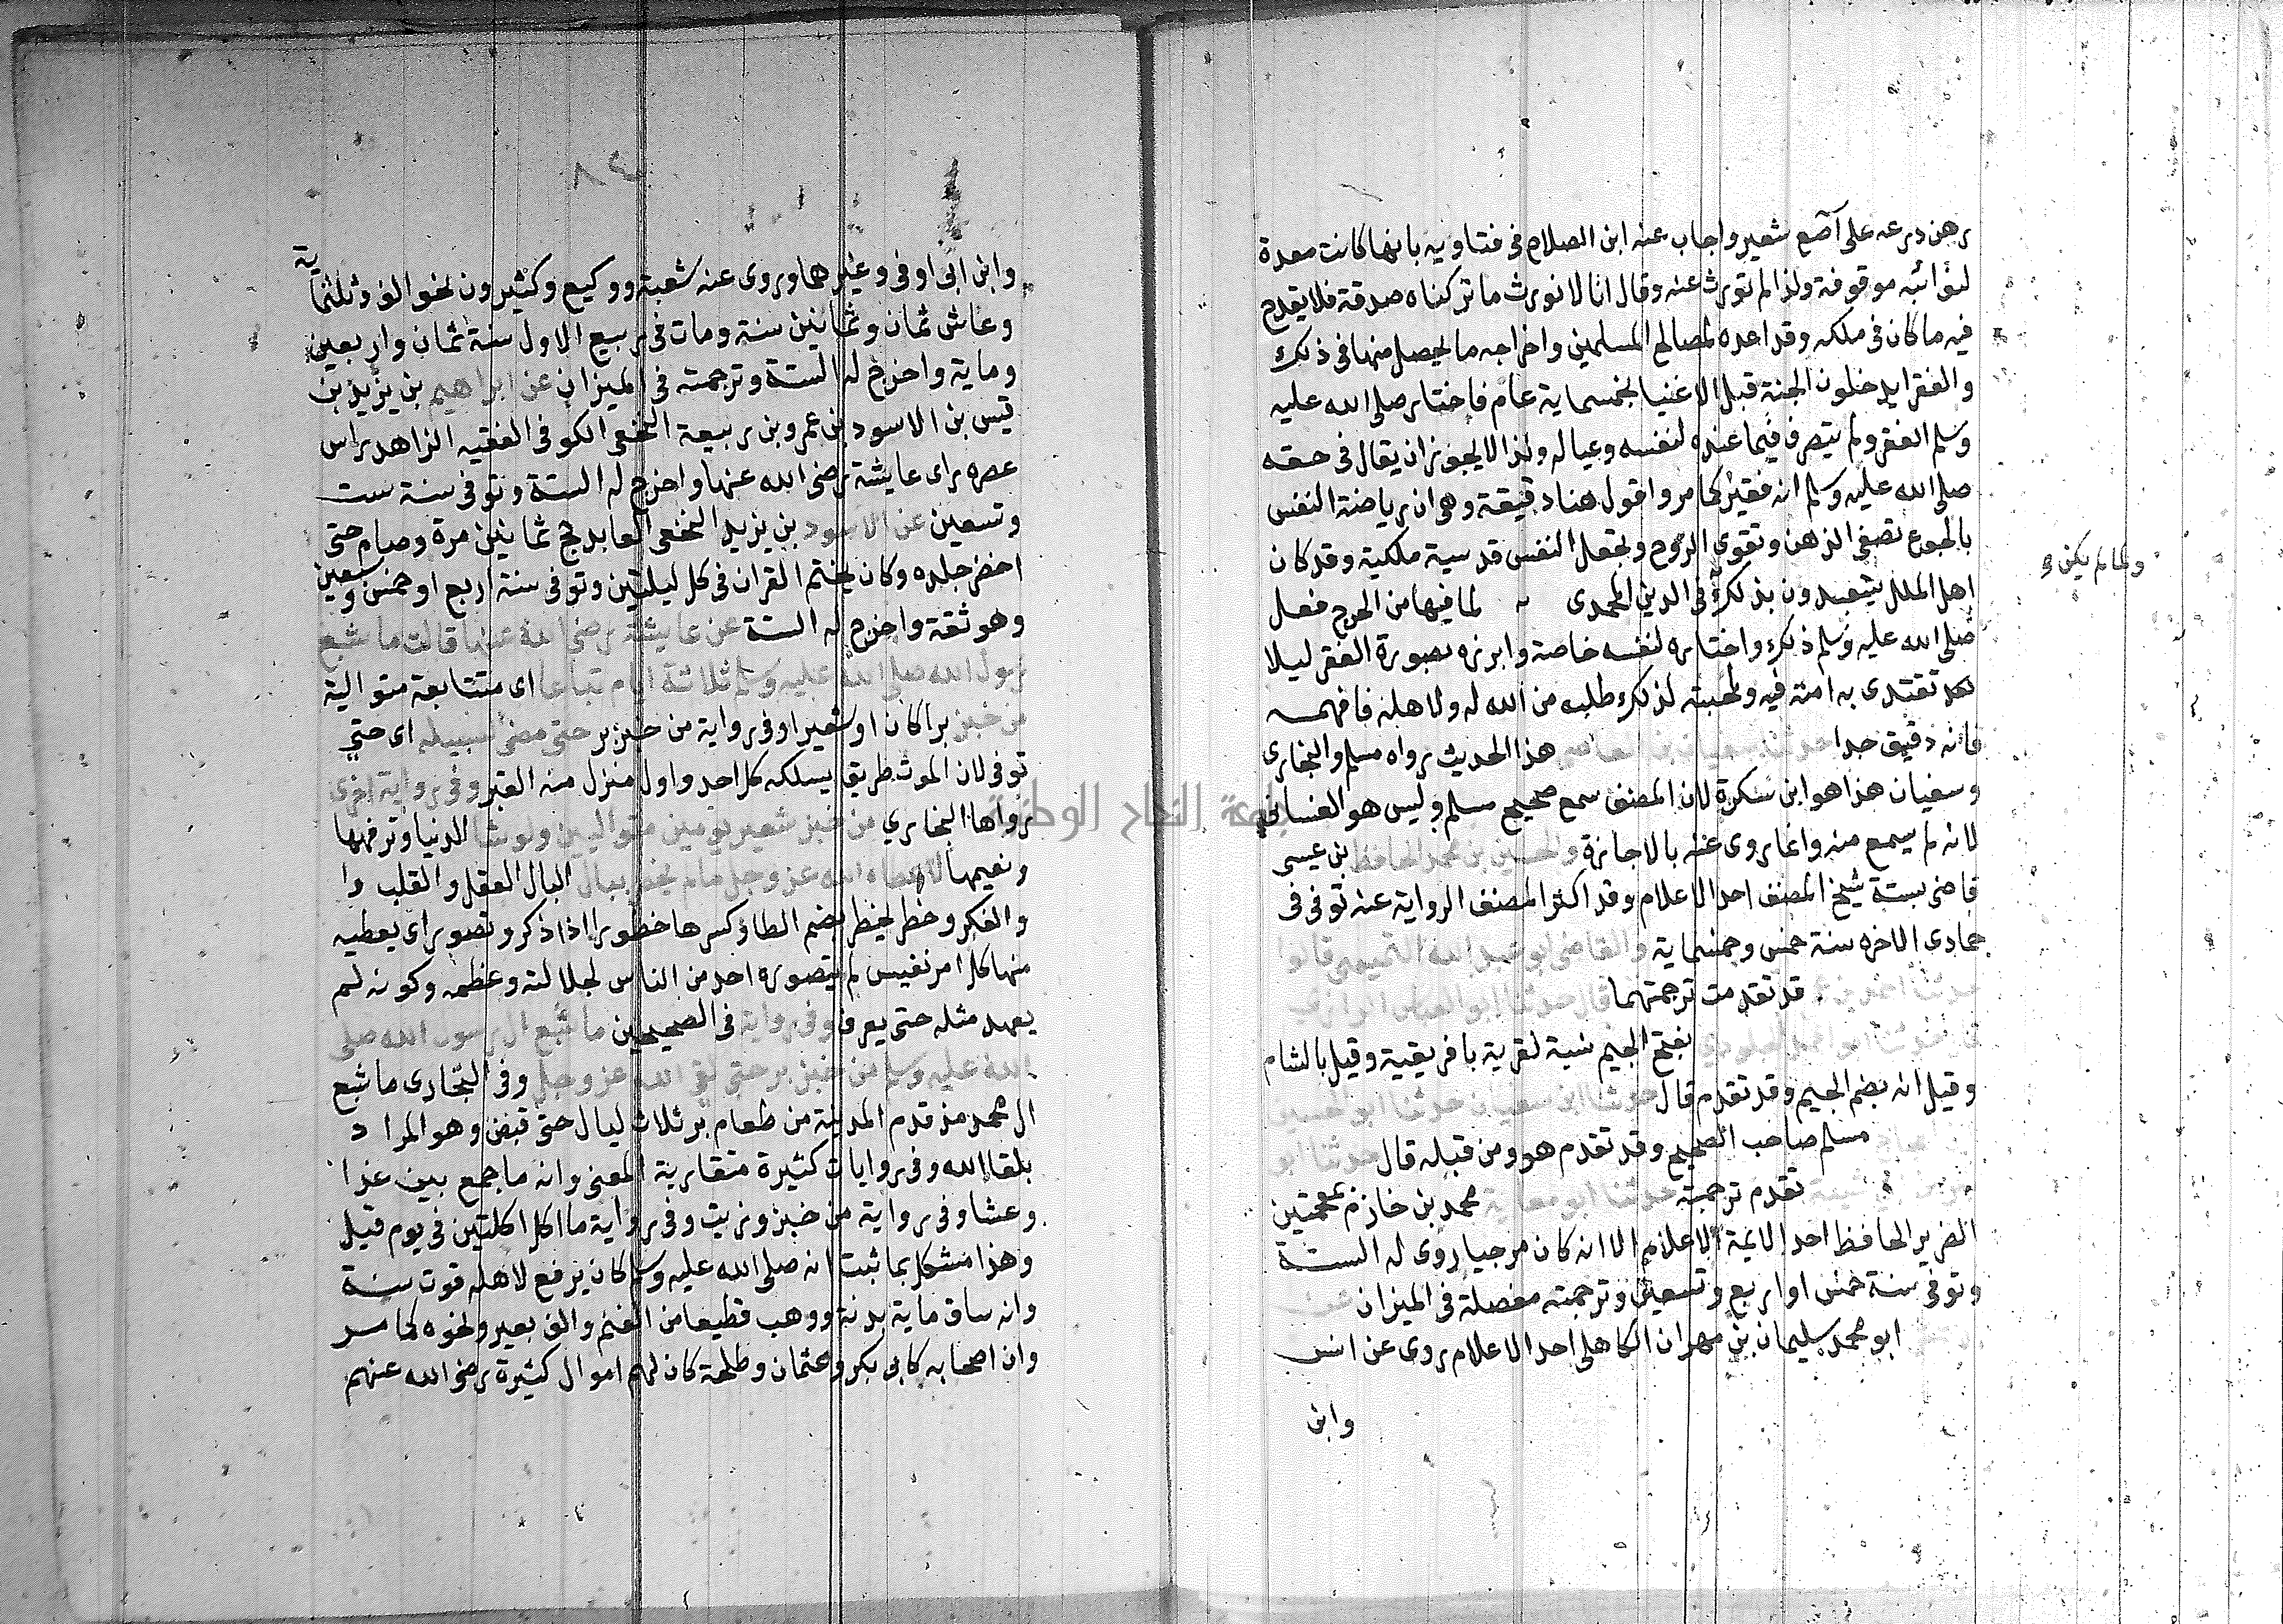 رهن درعه على آصع شعير واجاب عنه ابن الصلاح في فتاويه بانها كانت معدة
لنوائبه موقوفة ولذا لم تورث عنه وقال انا لا نورث ما تركناه صدقة فلا يقدح
فيه ما كان في ملكه وقد اعده لمصالح المسلمين واخراجه ما يحصل منها في ذلك
والفقرا يدخلون الجنة قبل الاغنيا بخمسماية عام فاختار صلى الله عليه
وسلم الفقر ولم يتصرف فيما عنده لنفسه وعياله ولذا لا يجوز ان يقال في حقه
صلى الله عليه وسلم انه فقير كما مر واقول هنا دقيقة وهي ان رياضة النفس
بالجوع تصفي الذهن وتقوي الروح وتجعل النفس قدسية ملكية وقد كان
اهل الملل يتعبدون بذلك في الدين المحمدي لما فيها من الحرج فعل
ولما لم يكن
صلى الله عليه وسلم ذلك واختاره لنفسه خاصة وابرزه بصورة الفقر ليلا
تقتدي به امته فيه ولمحبته لذلك طلبه من الله له ولاهله فافهمه
فانه دقيق جدا حدثنا سفيان بن العاص هذا الحديث رواه مسلم والبخاري
وسفيان هذا هو ابن سكرة لان المصنف سمع صحيح مسلم وليس هو الغساني
لانه لم يسمع منه وانما روى عنه بالاجازة والحسين بن محمد الحافظ بن عيسى
قاضي سبتة شيخ المصنف احد الاعلام وقد اكثر المصنف الرواية عنه توفي في
جمادى الاخره سنة خمس وخمسماية والقاضي ابو عبد الله التميمي قالوا
حدثنا احمد بن عمر قد تقدمت ترجمتهما قال حدثنا ابو العباس الرازي
حدثنا ابو احمد الجلودي بفتح الجيم نسبة لقرية بافريقية وقيل بالشام
وقيل انه بضم الجيم وقد تقدم قال حدثنا ابن سفيان حدثنا ابو الحسين
مسلم صاحب الصحيح وقد تقدم هو ومن قبله قال حدثنا ابو
بكر بن ابي شيبة تقدم ترجمته حدثنا ابو معاوية محمد بن خازم بمعجمتين
الضرير الحافظ احد الايمة الاعلام الا انه كان مرجيا روى له الستة
وتوفي سنة خمس او اربع وتسعين وترجمته مفصلة في الميزان عن
ابو محمد سليمان بن مهران الكاهلي احد الاعلام روى عن انس
وابن
٨٢
وابن ابي اوفى وغيرهما وروى عنه شعبة ووكيع وكثيرون نحو الف وثلثماية
وعاش ثمان وثمانين سنة ومات في ربيع الاول سنة ثمان واربعين
وماية واخرج له الستة وترجمته في الميزان عن ابراهيم بن يزيد بن
قيس بن الاسود بن عمرو بن ربيعة النخعي الكوفي الفقيه الزاهد راس
عصره راى عايشة رضي الله عنها واخرج له الستة وتوفي سنة ست
وتسعين عن الاسود بن يزيد النخعي العابد حج ثمانين مرة وصام حتى
اخضر جلده وكان يختم القران في كل ليلتين وتوفي سنة اربع او خمس وسبعين
وهو ثقة واخرج له الستة عن عايشة رضي الله عنها قالت ما شبع
رسول الله صلى الله عليه وسلم ثلاثة ايام تباعا اي متتابعة متوالية
من خبز براكان او شعيرا وفي رواية من خبز بر حتى مضى لسبيله اي حتى
توفي لان الموت طريق يسلكه كل احد واول منزل منه القبر وفي رواية اخرى
رواها البخاري من خبز شعير يومين متواليين ولو شا الدنيا وترفهها
ونعيمها لاعطاه الله عز وجل ما لم يخطر ببال البال العقل والقلب وا
والفكر وخطر يخطر بضم الطا وكسرها خطورا اذا ذكر وتصور اي يعطيه
منها كل امر نفيس لم يتصوره احد من الناس لجلالته وعظمه وكونه لم
يعهد مثله حتى يعرف وفي رواية في الصحيحين ما شبع ال رسول الله صلى
الله عليه وسلم من خبز بر حتى لقي الله عز وجل وفي البخاري ما شبع
ال محمد منذ قدم المدينة من طعام بر ثلاث ليال حتى قبض وهو المراد
بلقا الله وفي روايات كثيرة متقاربة المعنى وانه ما جمع بين غدا
وعشا وفي رواية من خبز وزيت وفي رواية ما اكل اكلتين في يوم قيل
وهذا مشكل بما ثبت انه صلى الله عليه وسلم كان يرفع لاهله قوت سنة
وانه ساق ماية بدنة ووهب قطيعا من الغنم والف بعير ونحوه كما مر
وان اصحابه كابي بكر وعثمان وطلحة كان لهم اموال كثيرة رضي الله عنهم
جامعة النجاح الوطنية